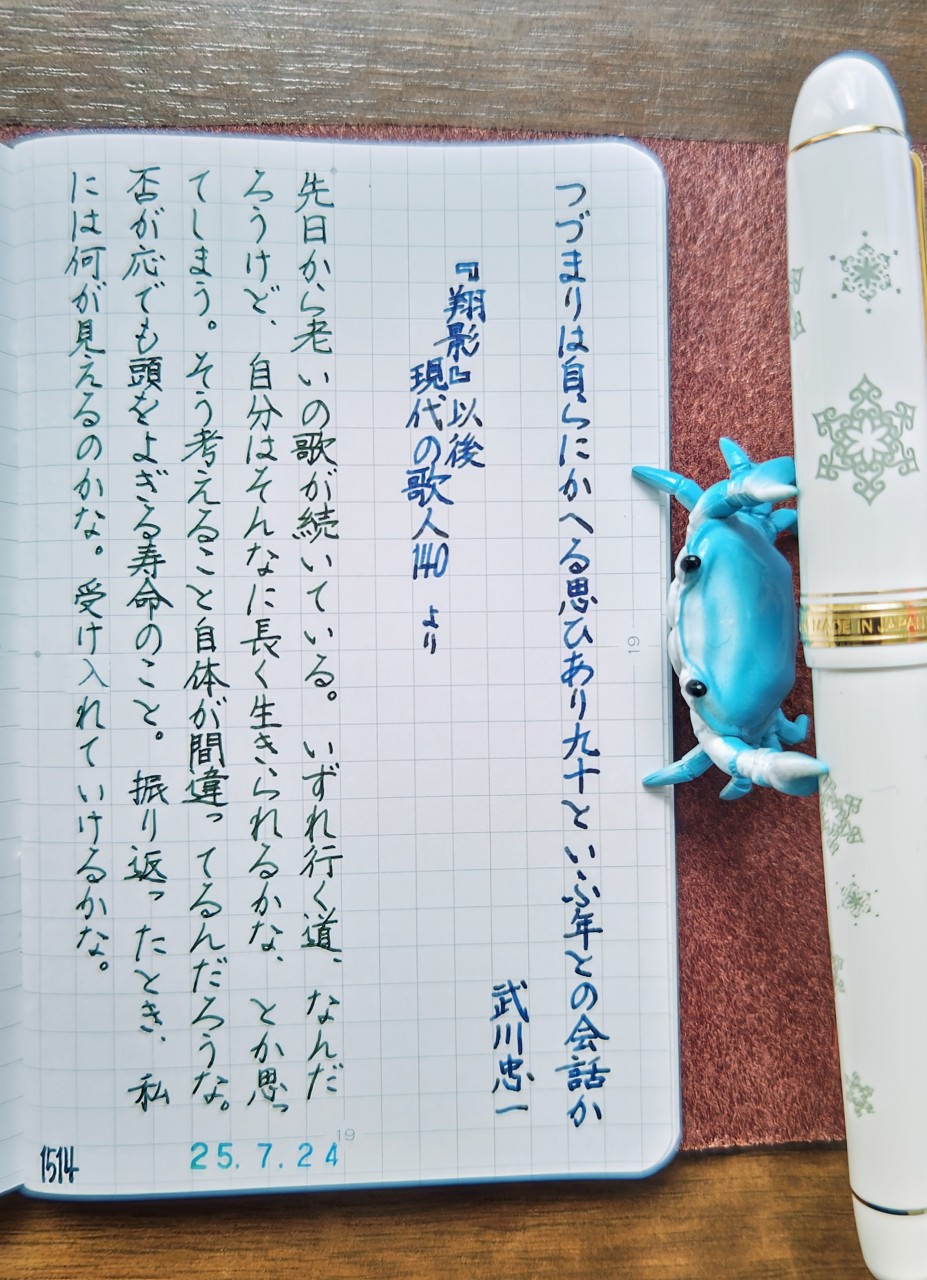 つづまりは自らにかへる思ひあり九十といふ年との会話か
武川忠一
『翔影』以後
現代の歌人140 より
先日から老いの歌が続いている。いずれ行く道、なんだ
ろうけど、自分はそんなに長く生きられるかな、とか思っ
てしまう。そう考えること自体が間違ってるんだろうな。
否が応でも頭をよぎる寿命のこと。振り返ったとき、私
には何が見えるのかな。受け入れていけるかな。
19
19
25.7.24
1514
MADE IN JAPAN